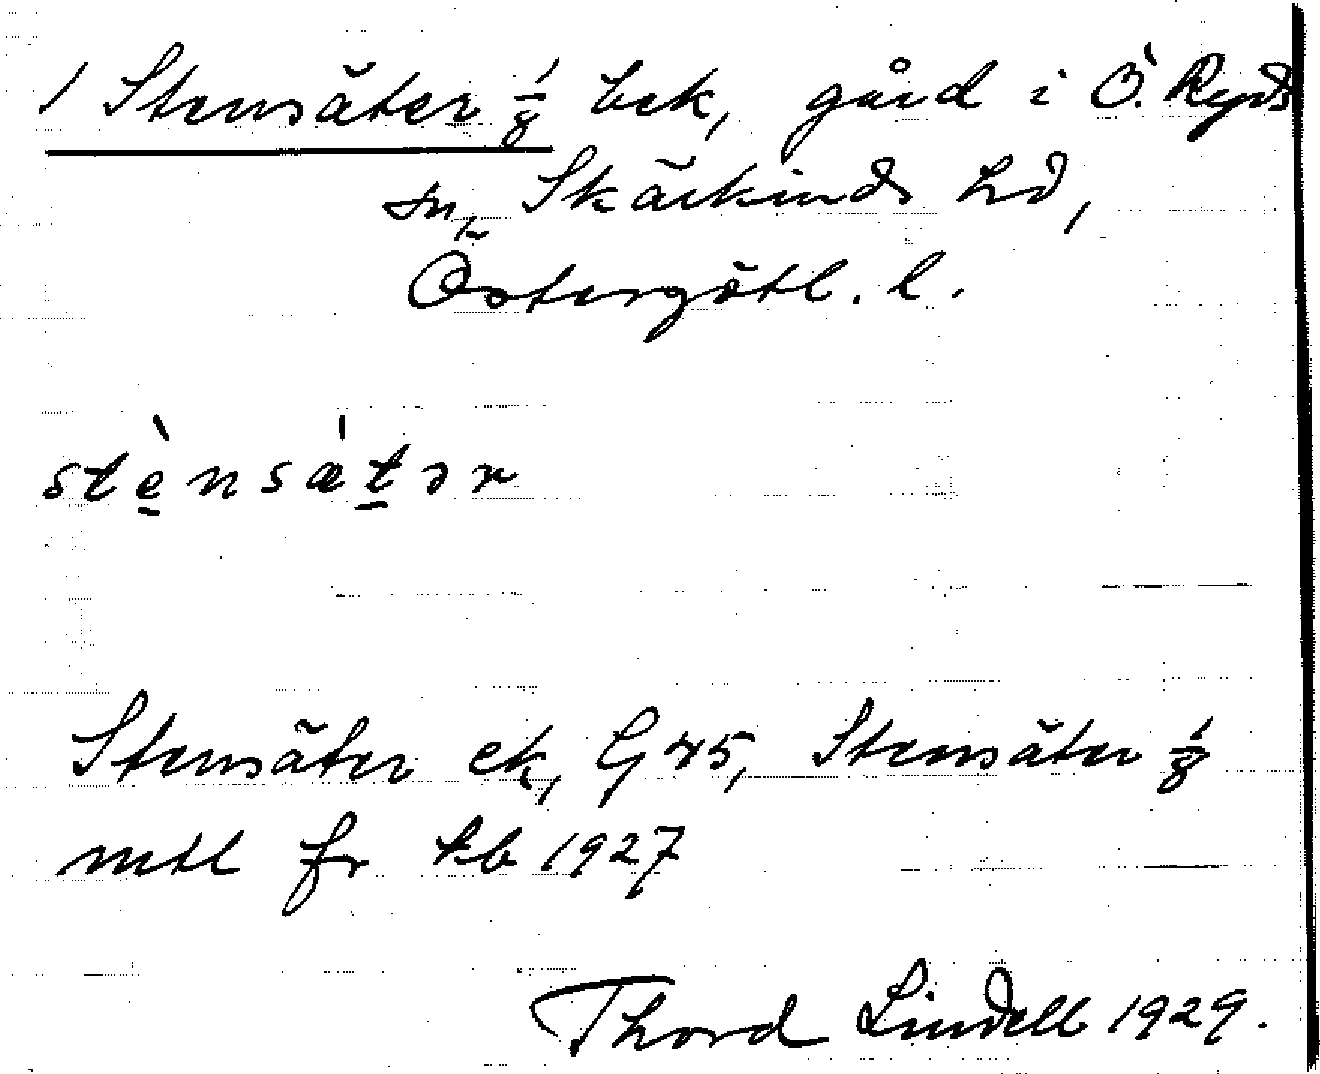 1 Stensäter 1/8 bek, gård i Ö. Ryds
sn, Skärkinds hd,
Östergötl. l.
stènsǽtər
Stensäter ek, G 45, Stensäter 1/8
mtl fr kb 1927
Thord Lindell 1929.